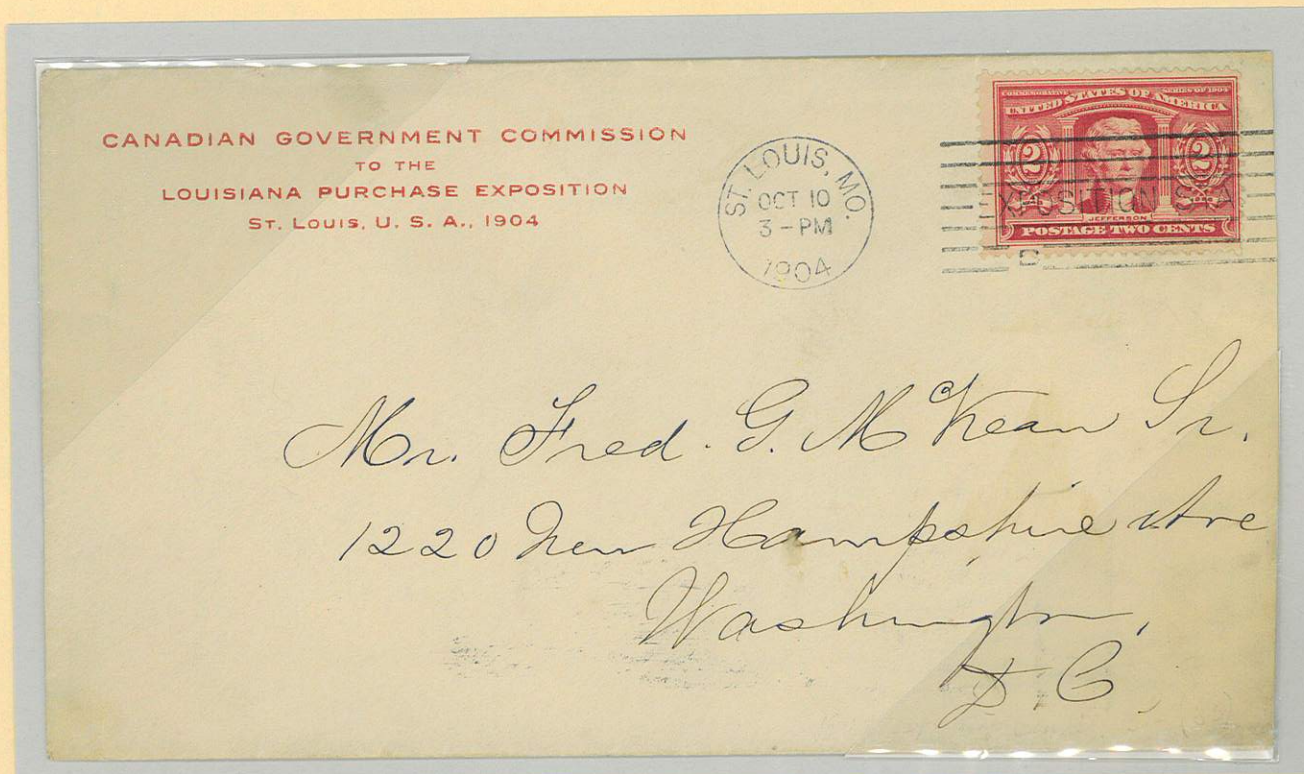 CANADIAN GOVERNMENT COMMISSION
TO THE
LOUISIANA PURCHASE EXPOSITION
ST. LOUIS, U. S. A., 1904
ST. LOUIS, MO.
OCT 10
3 - PM
1904
COMMEMORATIVE SERIES OF 1904
UNITED STATES OF AMERICA
2 2
EXPOSITION STA
JEFFERSON
POSTAGE TWO CENTS
D
Mr. Fred. G. McKean Sr.
1220 New Hampshire Ave
Washington,
D. C.